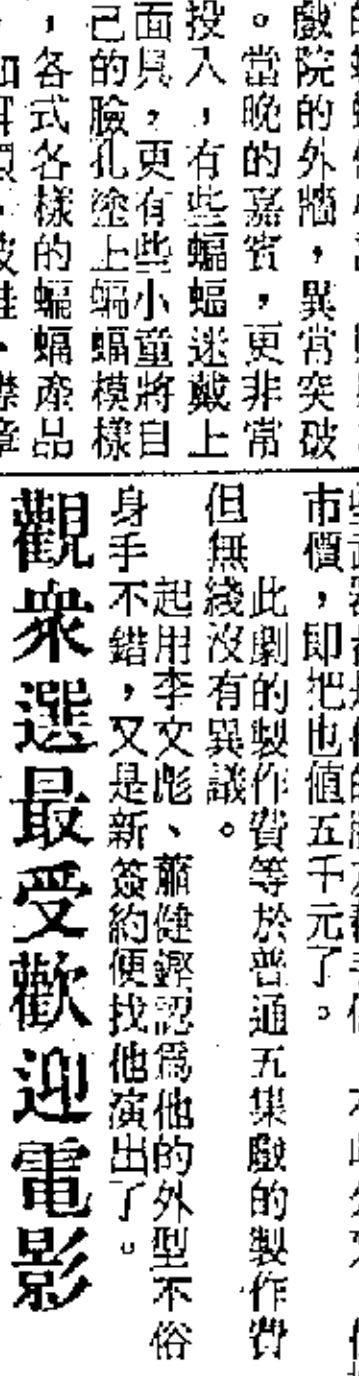 戲院的外牆，異常突破
。當晚的嘉賓，更非常
投入，有些蝙蝠迷戴上
面具，更有些小童將自
己的臉孔塗上蝙蝠模樣
，各式各樣的蝙蝠產品
市價，即把也值五千元了。
此劇的製作費等於普通五集戲的製作費
但無綫沒有異議。
起用李文彪、蕭健鏗認爲他的外型不俗
身手不錯，又是新簽約便找他演出了。
觀衆選最受歡迎電影